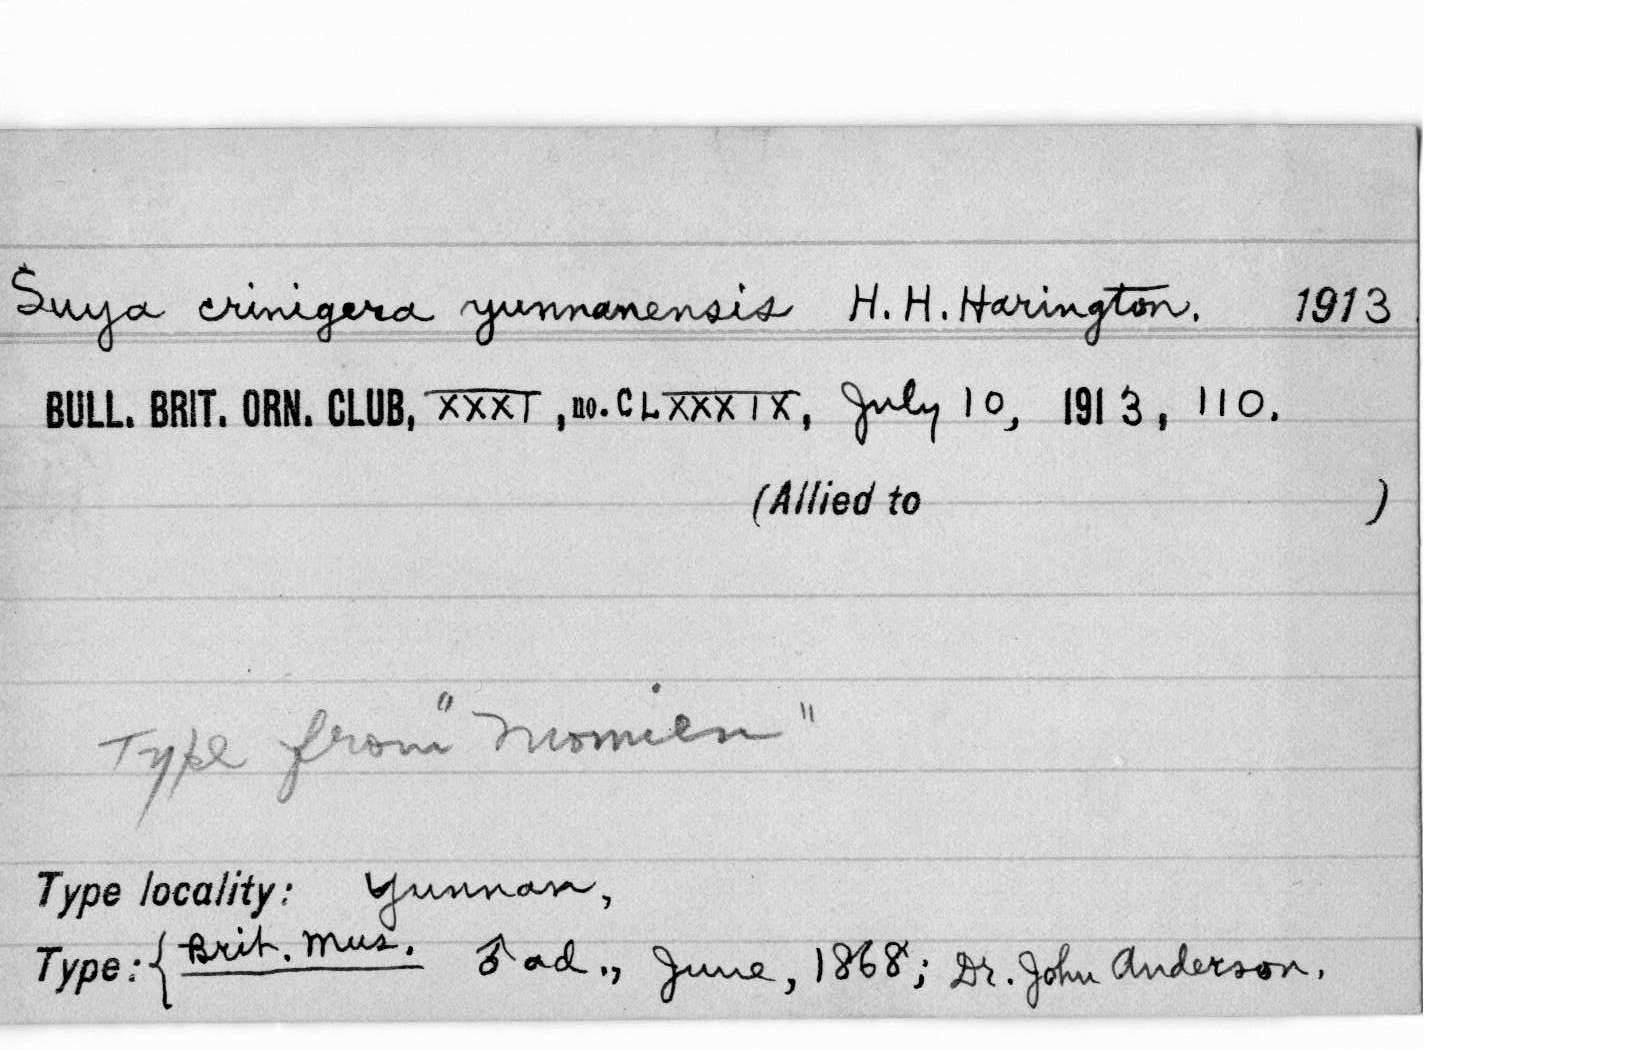 Suya crinigera yunnanensis H. H. Harington. 1913
BULL. BRIT. ORN. CLUB, XXXI, no. CLXXXIX, July 10, 1913, 110.
(Allied to )
Type from "Momien"
Type locality: Yunnan,
Type: { Brit. Mus. ♂ ad., June, 1868; Dr. John Anderson.